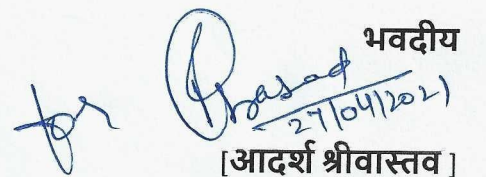 भवदीय
for Prasad
27/04/2021
[आदर्श श्रीवास्तव]